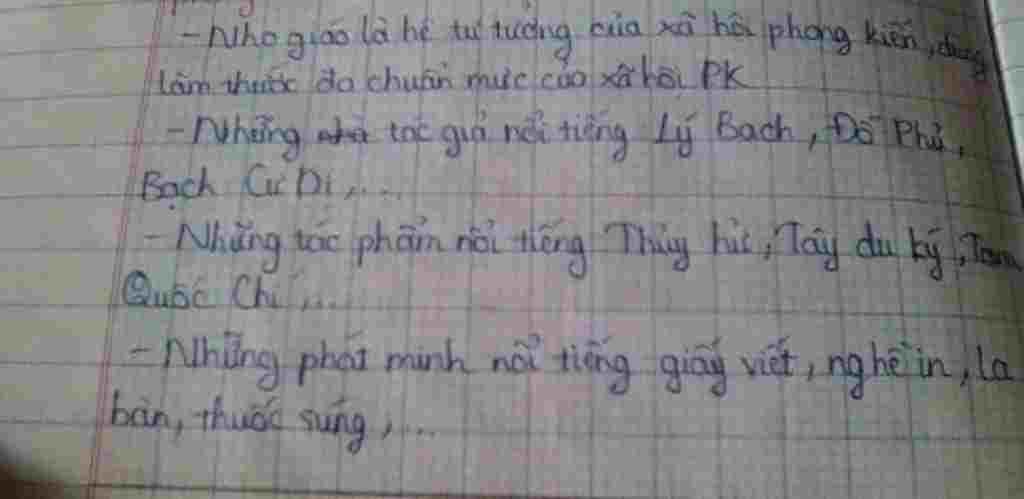 - Nho giáo là hệ tư tưởng của xã hội phong kiến, dùng
làm thước đo chuẩn mực của xã hội PK
- Những tác giả nổi tiếng Lý Bạch, Đỗ Phủ,
Bạch Cư Dị,...
- Những tác phẩm nổi tiếng Thủy hử, Tây du ký, Tam
Quốc Chí,...
- Những phát minh nổi tiếng giấy viết, nghề in, la
bàn, thuốc súng,...